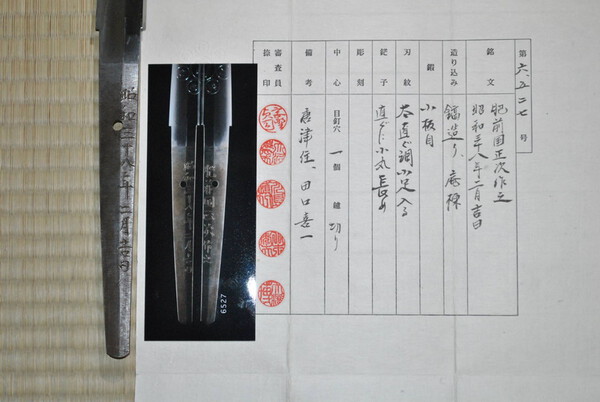 第六、五二七号
銘文 肥前国正次作之
昭和三十八年二月吉日
造り込み 鎬造り、庵棟
鍛 小板目
刃紋 直ぐ調小足入る
鋩子 直ぐに小丸長め
彫刻
中心 目釘穴 一個 鑢 切り
備考 唐津住、田口喜一
審査員
6527
昭和三十八年二月吉日